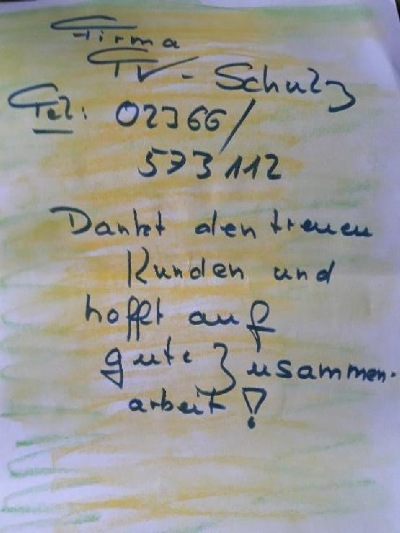 Firma
TV - Schulz
Tel: 02366/
573112
Dankt den treuen
Kunden und
hofft auf
gute Zusammen-
arbeit!